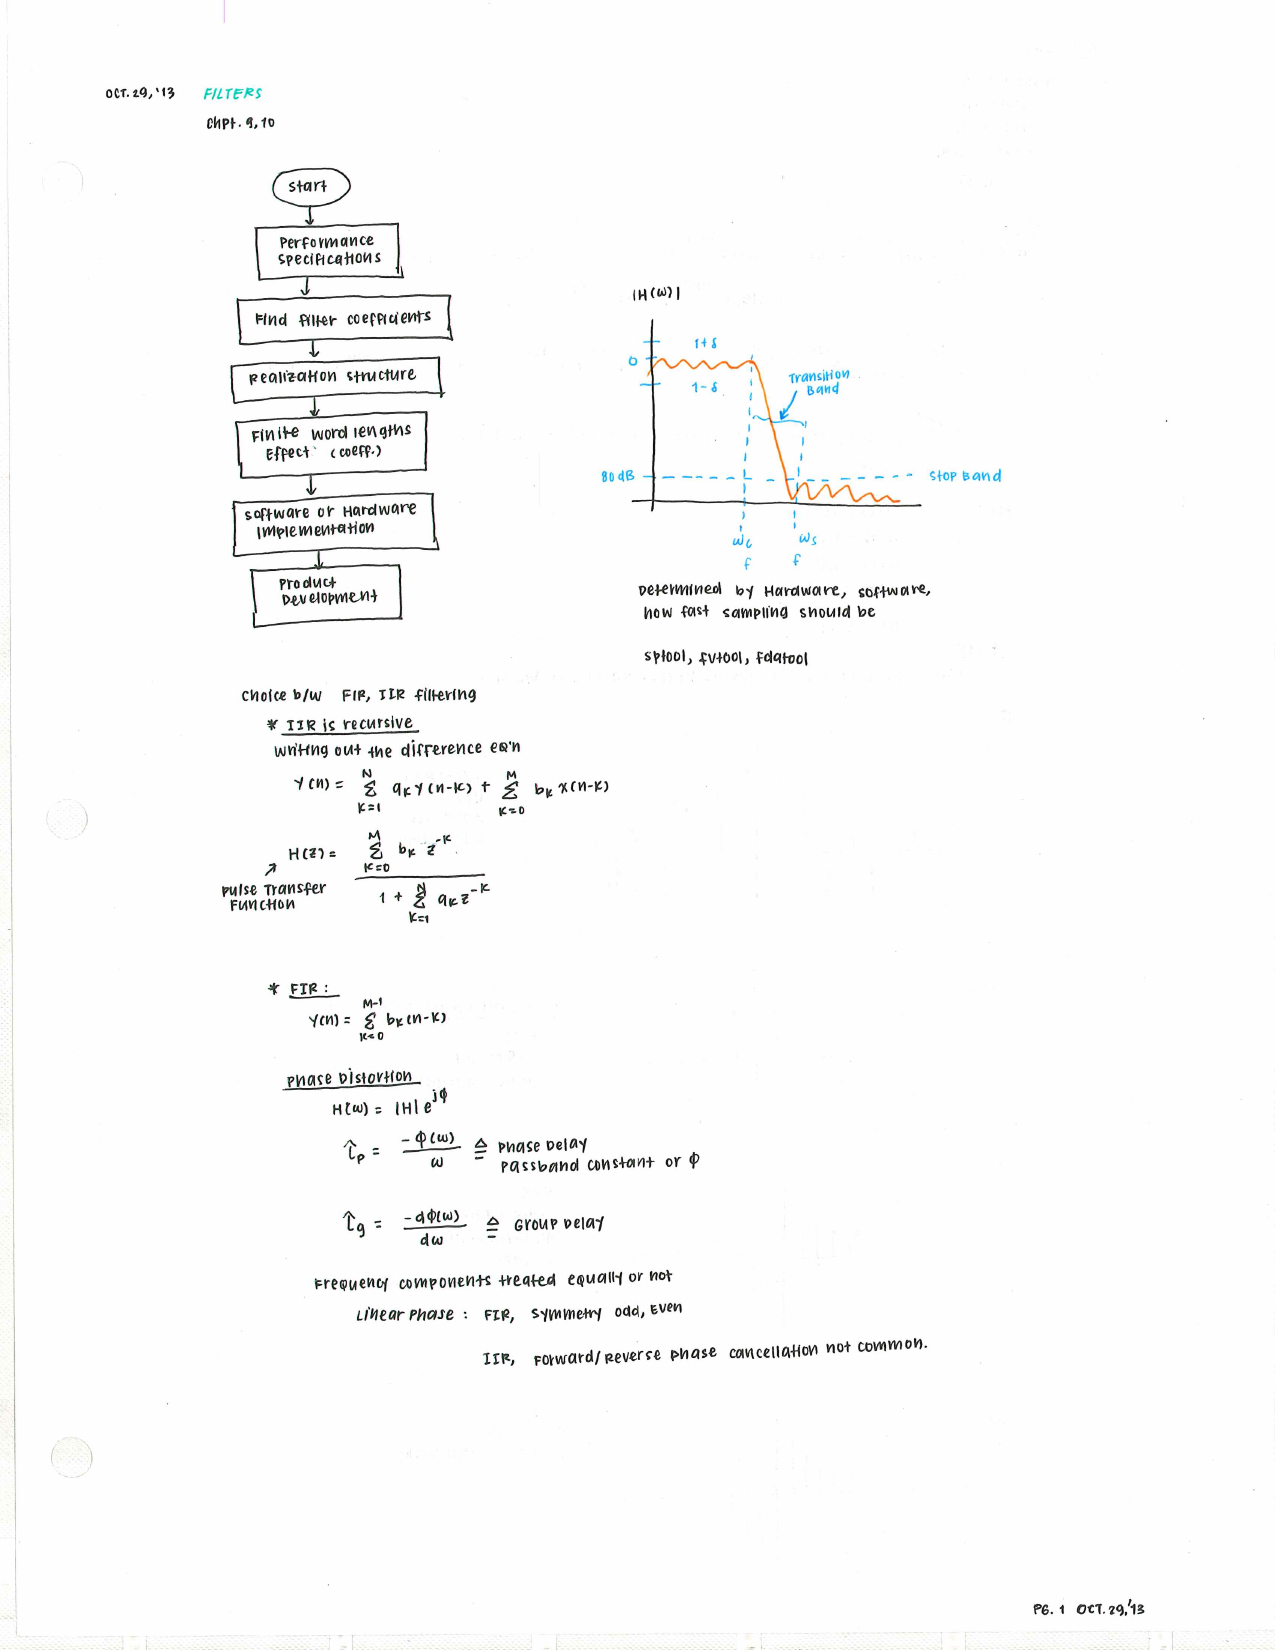 OCT. 29, '13 FILTERS
Chpt. 9, 10
Start
Performance
Specifications
Find filter coefficients
Realization structure
Finite word lengths
Effect (coeff.)
Software or Hardware
Implementation
Product
Development
|H(ω)|
1+δ
0
1-δ
Transition
Band
80 dB
Stop Band
ωc ωs
f f
Determined by Hardware, software,
how fast sampling should be
sptool, fvtool, fdatool
Choice b/w FIR, IIR filtering
* IIR is recursive
Writing out the difference eq'n
Y(n) = Σ_{k=1}^{N} a_k Y(n-k) + Σ_{k=0}^{M} b_k x(n-k)
H(z) = Σ_{k=0}^{M} b_k z^{-k} / 1 + Σ_{k=1}^{N} a_k z^{-k}
Pulse Transfer
Function
* FIR :
Y(n) = Σ_{k=0}^{M-1} b_k (n-k)
Phase Distortion
H(ω) = |H| e^{jφ}
τ̂_p = -φ(ω) / ω ≙ Phase Delay
Passband constant or φ
τ̂_g = -dφ(ω) / dω ≙ Group Delay
Frequency components treated equally or not
Linear Phase : FIR, symmetry odd, Even
IIR, Forward/Reverse phase cancellation not common.
PG. 1 OCT. 29, '13